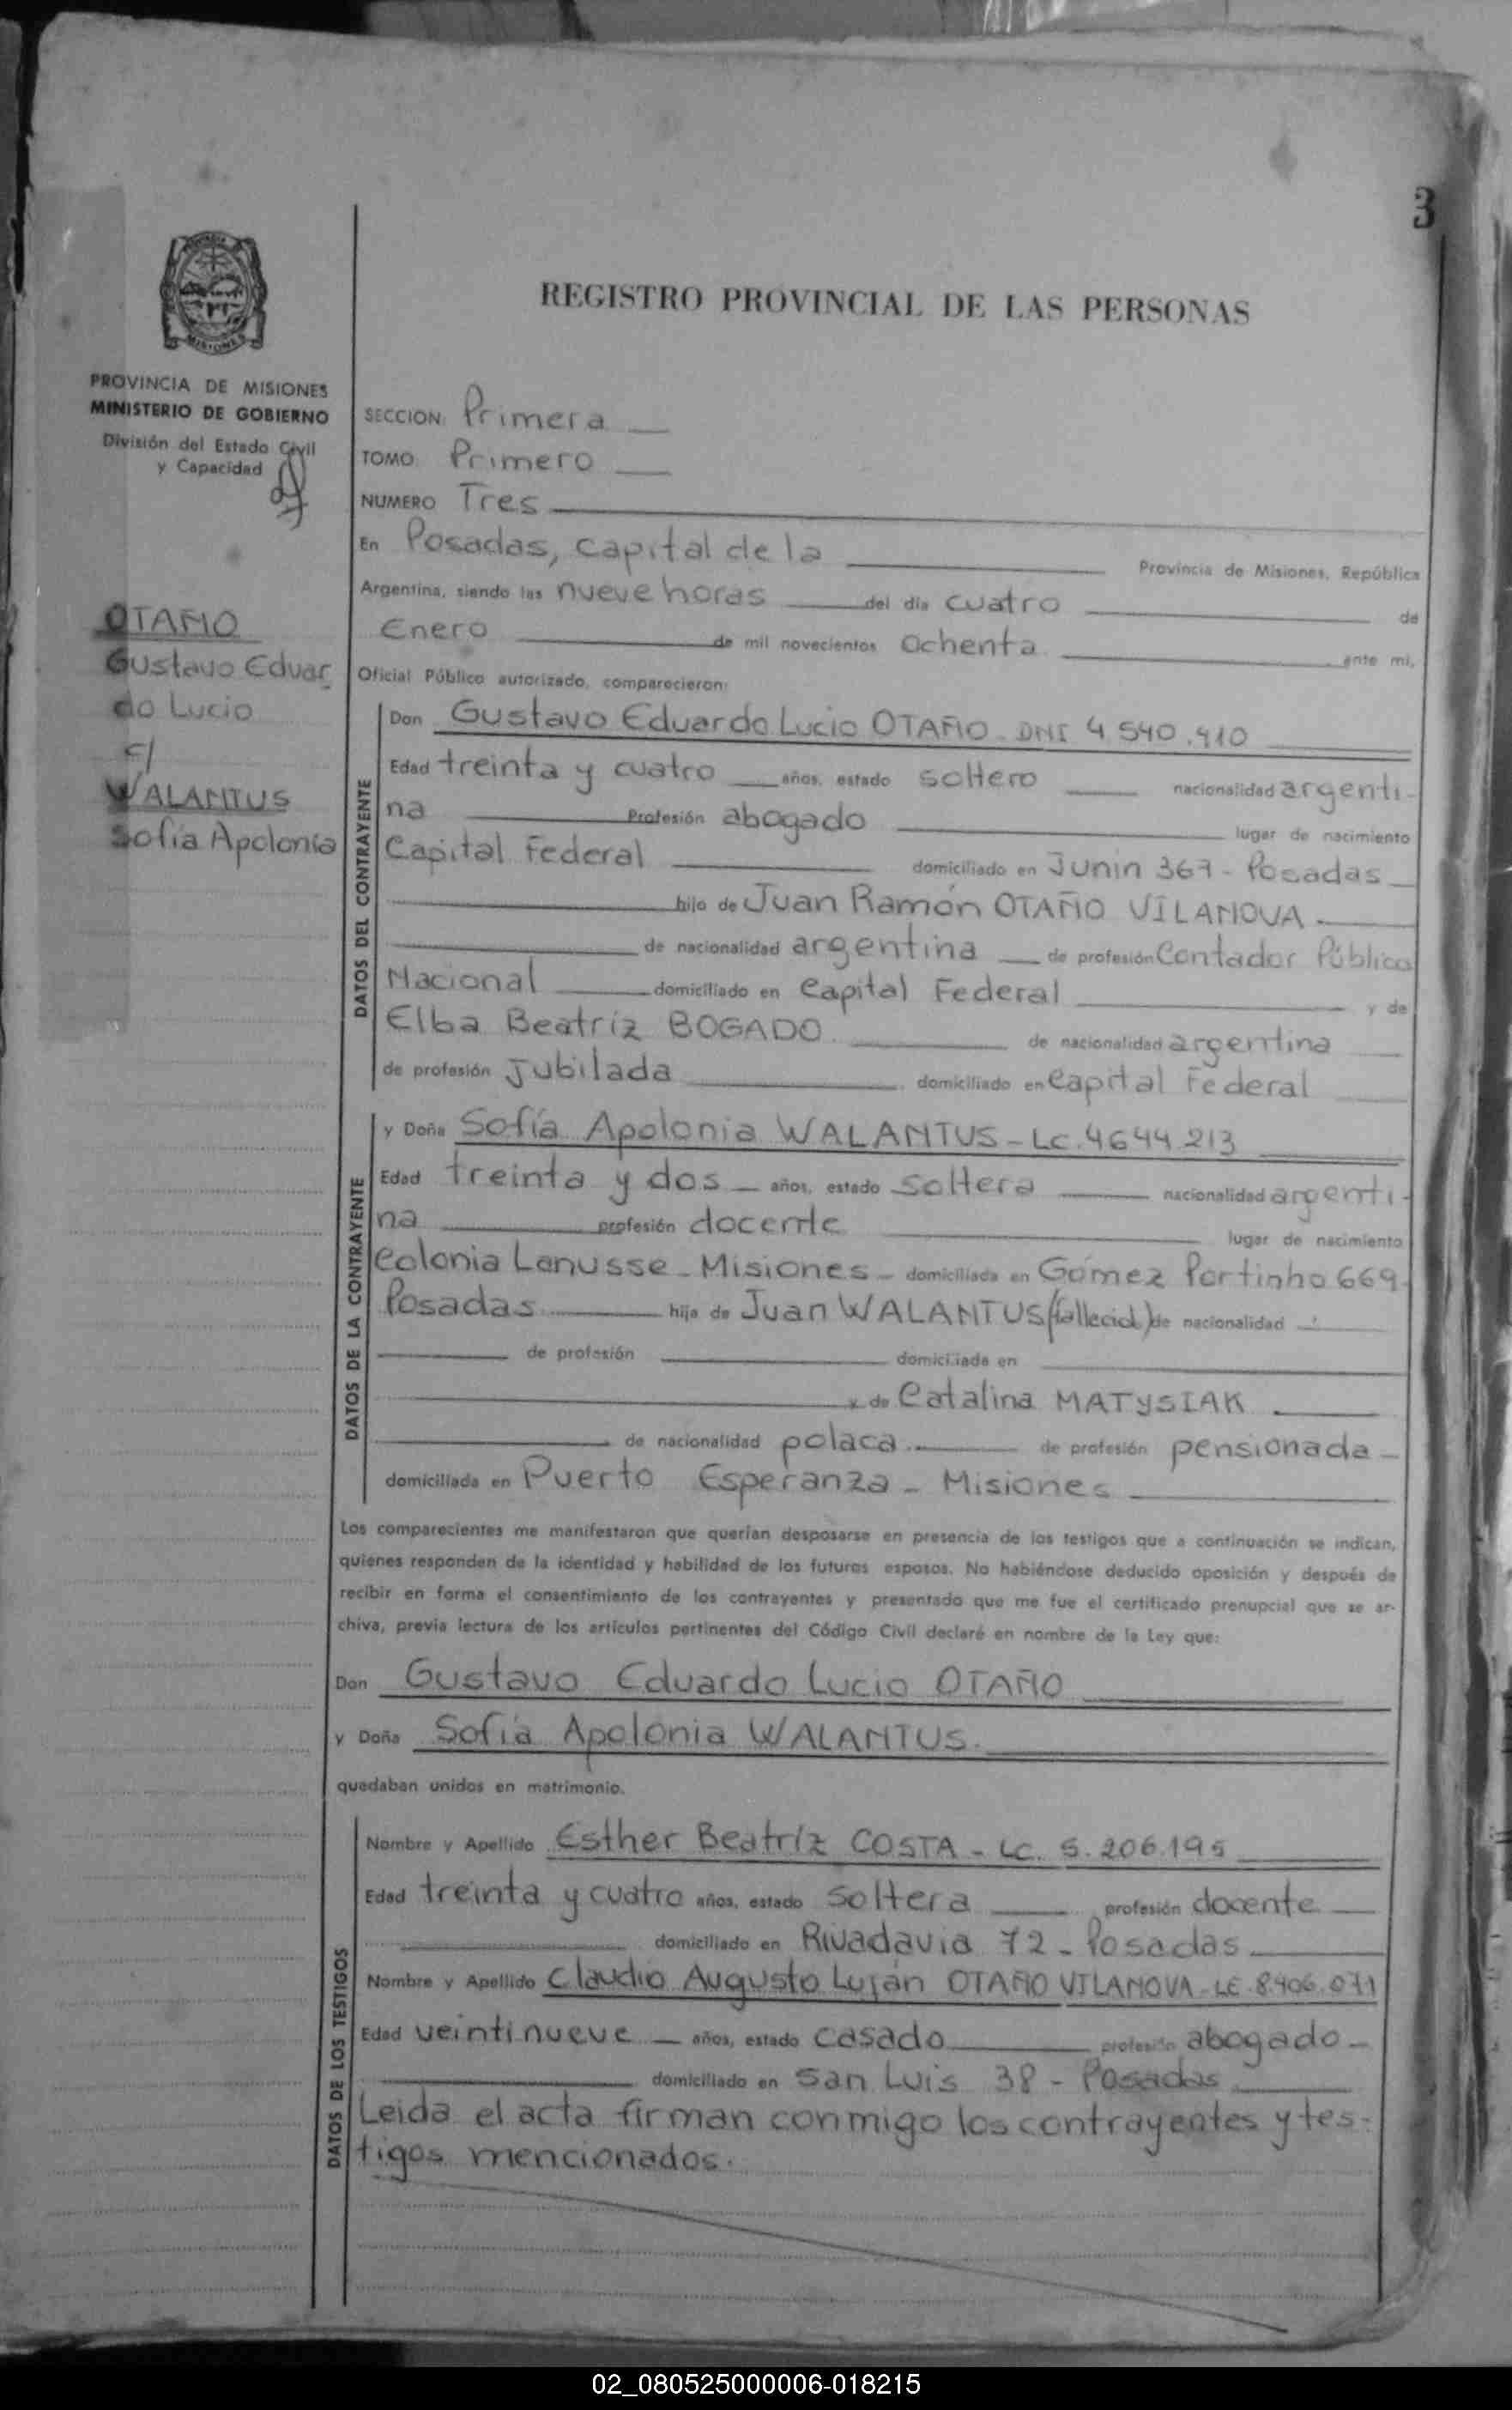 3
REGISTRO PROVINCIAL DE LAS PERSONAS
PROVINCIA DE MISIONES
MINISTERIO DE GOBIERNO
División del Estado Civil
y Capacidad
OTAÑO
Gustavo Eduar
do Lucio
c/
WALANTUS
Sofía Apolonia
SECCION: Primera
TOMO: Primero
NUMERO Tres
En Posadas, capital de la Provincia de Misiones, República
Argentina, siendo las nueve horas del día cuatro de
Enero de mil novecientos Ochenta ante mí,
Oficial Público autorizado, comparecieron:
DATOS DEL CONTRAYENTE
Don Gustavo Eduardo Lucio OTAÑO - DNI 4.540.910
Edad treinta y cuatro años, estado soltero nacionalidad argenti-
na Profesión abogado lugar de nacimiento
Capital Federal domiciliado en Junín 367 - Posadas
hijo de Juan Ramón OTAÑO VILANOVA
de nacionalidad argentina de profesión Contador Público
Nacional domiciliado en Capital Federal y de
Elba Beatríz BOGADO de nacionalidad argentina
de profesión jubilada domiciliado en Capital Federal
DATOS DE LA CONTRAYENTE
y Doña Sofía Apolonia WALANTUS - LC. 4644.213
Edad treinta y dos años, estado soltera nacionalidad argenti-
na profesión docente lugar de nacimiento
Colonia Lanusse - Misiones - domiciliada en Gómez Portinho 669-
Posadas hija de Juan WALANTUS (fallecid.) de nacionalidad
de profesión domiciliada en
y de Catalina MATYSIAK
de nacionalidad polaca de profesión pensionada -
domiciliada en Puerto Esperanza - Misiones
Los comparecientes me manifestaron que querían desposarse en presencia de los testigos que a continuación se indican,
quienes responden de la identidad y habilidad de los futuros esposos. No habiéndose deducido oposición y después de
recibir en forma el consentimiento de los contrayentes y presentado que me fue el certificado prenupcial que se ar-
chiva, previa lectura de los artículos pertinentes del Código Civil declaré en nombre de la Ley que:
Don Gustavo Eduardo Lucio OTAÑO
y Doña Sofía Apolonia WALANTUS.
quedaban unidos en matrimonio.
DATOS DE LOS TESTIGOS
Nombre y Apellido Esther Beatríz COSTA - LC. 5.206.195
Edad treinta y cuatro años, estado soltera profesión docente
domiciliado en Rivadavia 72 - Posadas
Nombre y Apellido Claudio Augusto Luján OTAÑO VILANOVA - LE. 8.406.071
Edad veintinueve años, estado casado profesión abogado -
domiciliado en San Luis 38 - Posadas
Leída el acta firman conmigo los contrayentes y tes-
tigos mencionados.
02_080525000006-018215